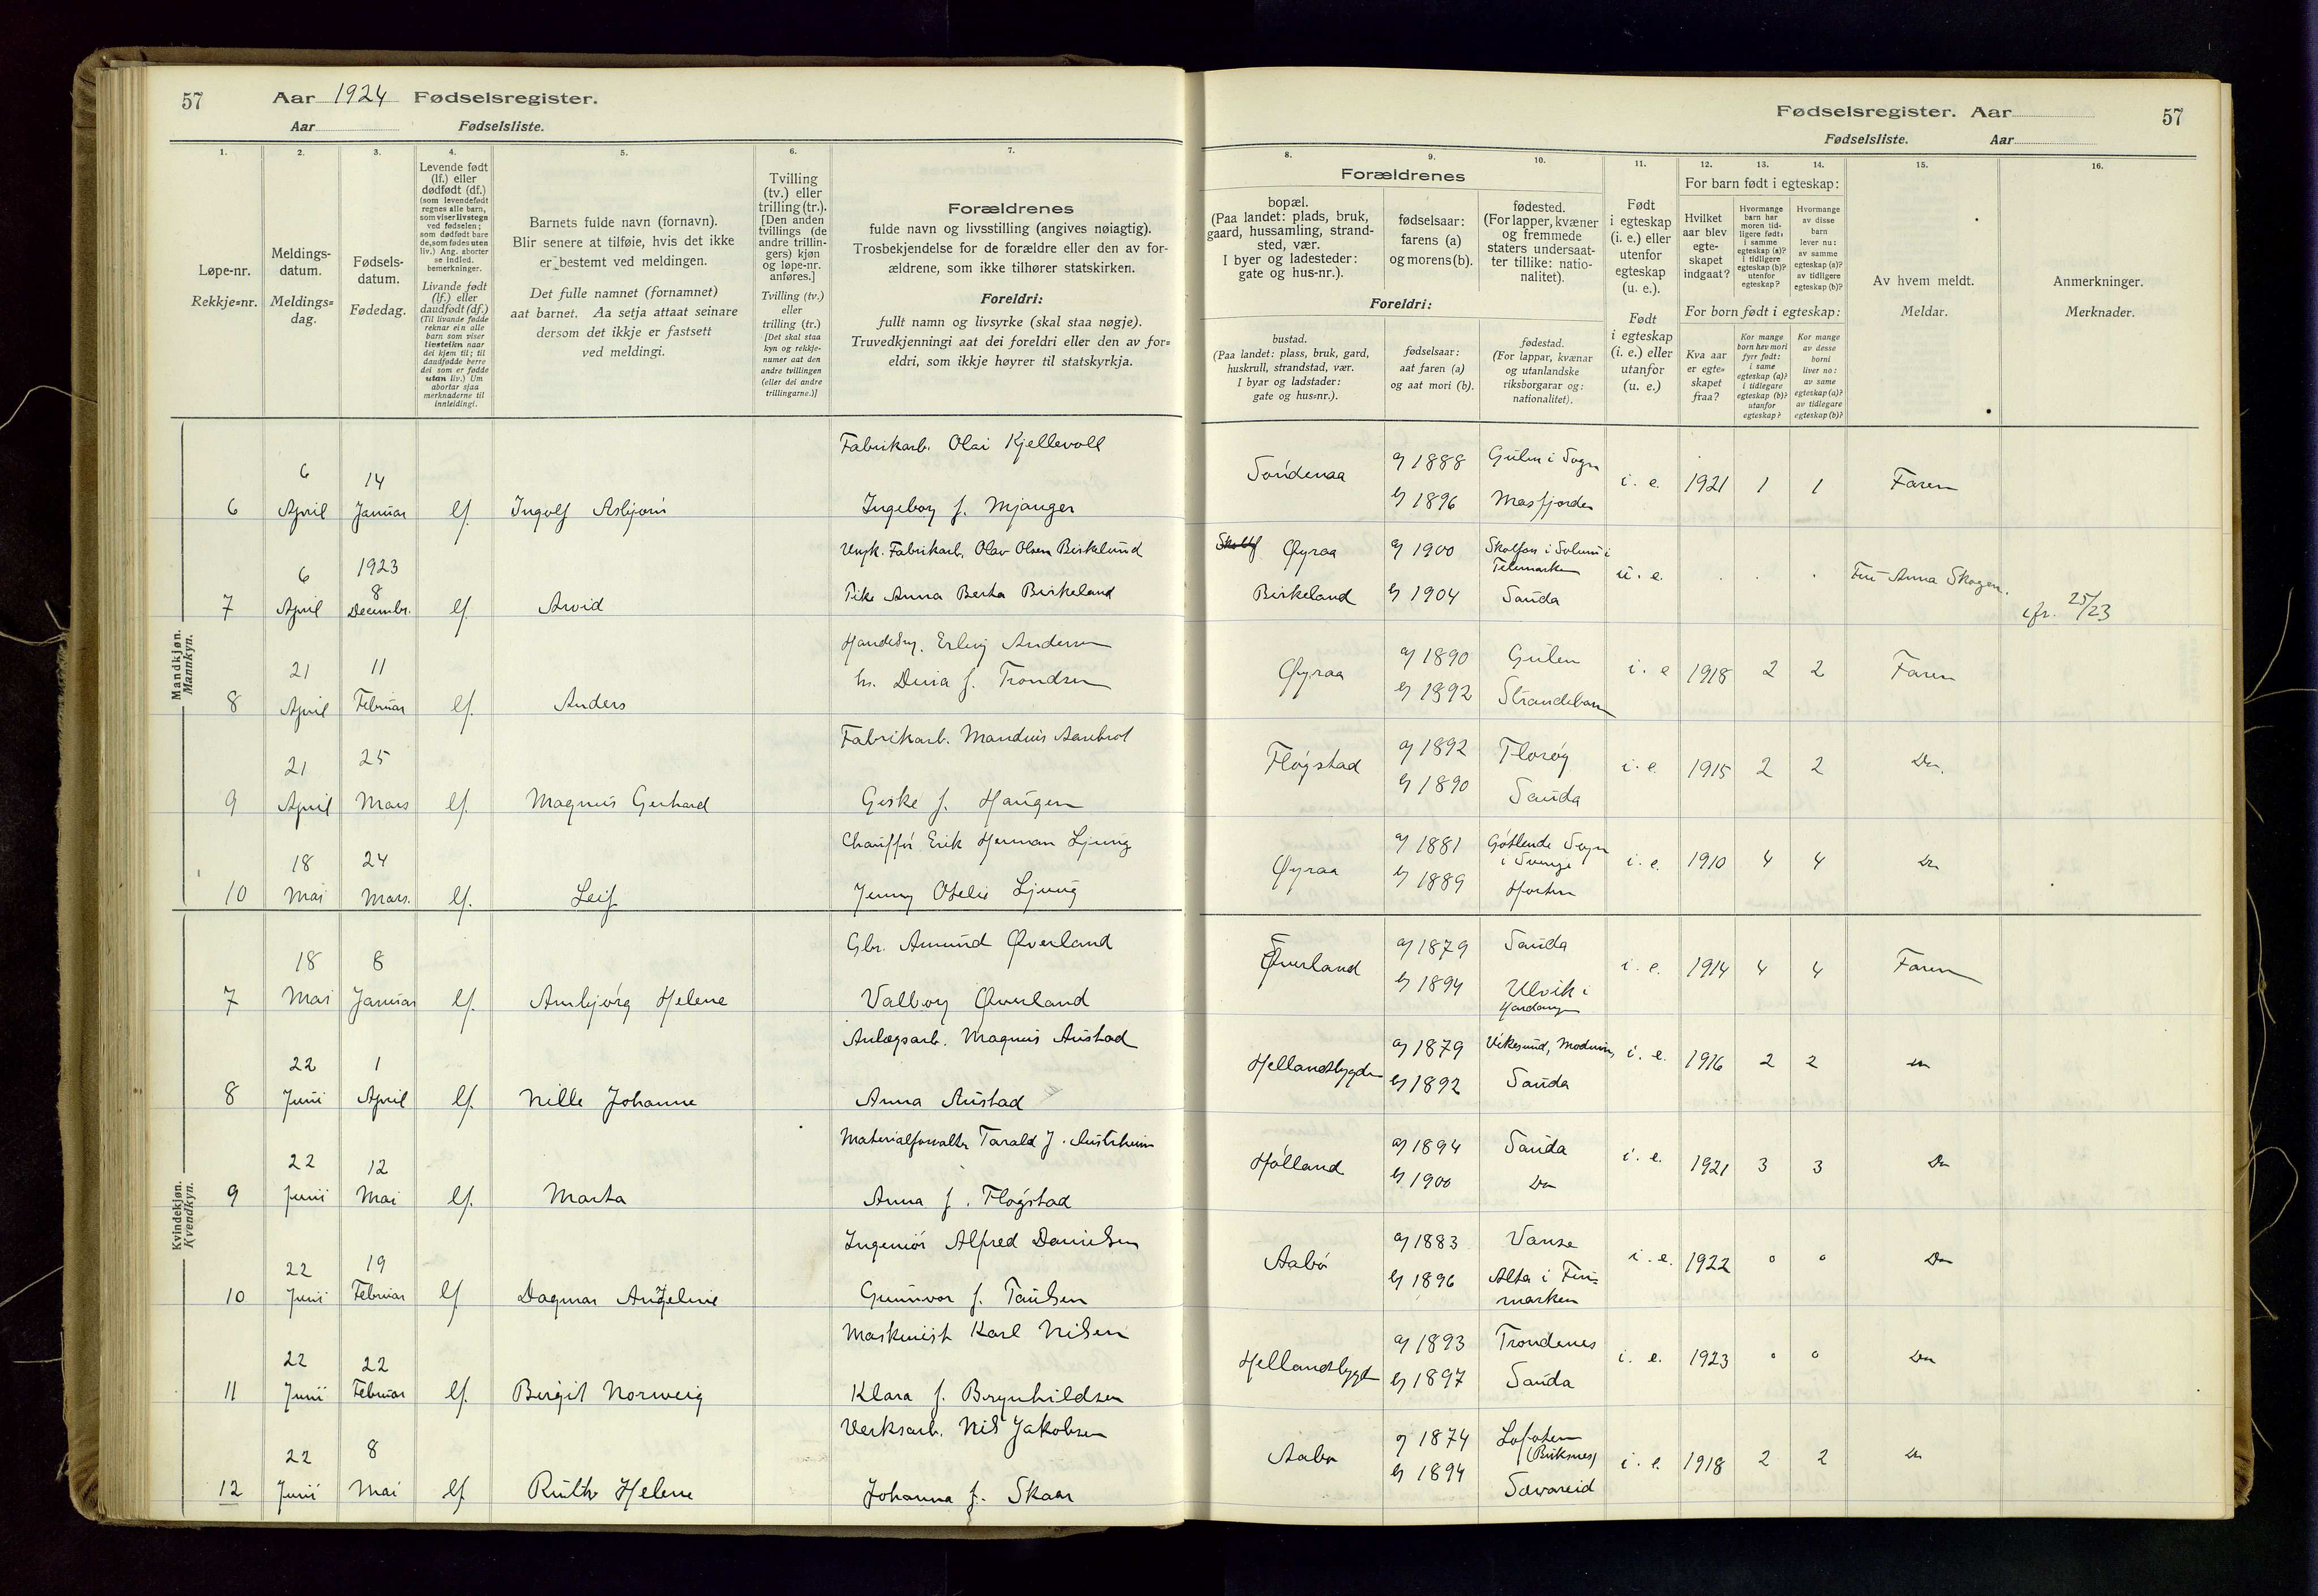 57 Aar 1924 Fødselsregister.
Aar Fødselsliste.
1. 2. 3. 4. 5. 6. 7.
Løpe-nr.
Rekkje=nr.
Meldings-
datum.
Meldings=
dag.
Fødsels-
datum.
Fødedag.
Levende født
(lf.) eller
dødfødt (df.)
(som levendefødt
regnes alle barn,
som viser livstegn
ved fødselen;
som dødfødt bare
de, som fødes uten
liv.) Ang. aborter
se indled.
bemerkninger.
Livande født
(lf.) eller
daudfødt (df.)
(Til livande fødde
reknar ein alle
barn som viser
livsteikn naar
dei kjem til; til
daudfødde berre
dei som er fødde
utan liv.) Um
abortar sjaa
merknaderne til
innleidingi.
Barnets fulde navn (fornavn).
Blir senere at tilføie, hvis det ikke
er bestemt ved meldingen.
Det fulle namnet (fornamnet)
aat barnet. Aa setja attaat seinare
dersom det ikkje er fastsett
ved meldingi.
Tvilling
(tv.) eller
trilling (tr.).
[Den anden
tvillings (de
andre trillin-
gers) kjøn
og løpe-nr.
anføres.]
Tvilling (tv.)
eller
trilling (tr.)
[Det skal staa
kyn og rekkje-
numer aat den
andre tvillingen
(eller dei andre
trillingarne.)]
Forældrenes
fulde navn og livsstilling (angives nøiagtig).
Trosbekjendelse for de forældre eller den av for-
ældrene, som ikke tilhører statskirken.
Foreldri:
fullt namn og livsyrke (skal staa nøgje).
Truvedkjenningi aat dei foreldri eller den av for=
eldri, som ikkje høyrer til statskyrkja.
Mandkjøn.
Mannkyn.
Fabrikarb. Olai Kjellevoll
6 6 April 14 Januar lf. Ingolf Asbjørn Ingeborg f. Mjanger
Ungk. Fabrikarb. Olav Olsen Birkelund
7 6 April 1923 8 Decembr. lf. Arvid Pike Anna Berta Birkeland
Erling Andersen
8 21 April 11 Februar lf. Anders h. Dina f. Trondsen
Fabrikarb. Mandius Aarebrot
9 21 April 25 Mars lf. Magnus Gerhard Giske f. Haugen
Chauffør Erik Herman Ljung
10 18 Mai 24 Mars. lf. Leif Jenny Otelie Ljung
Kvindekjøn.
Kvendkyn.
Gbr. Amund Øverland
7 18 Mai 8 Januar lf. Arnbjørg Helene Valborg Øverland
Anlægsarb. Magnus Austad
8 22 Juni 1 April lf. Nille Johanne Anna Austad
Materialforvalter Tarald J. Austrheim
9 22 Juni 12 Mai lf. Marta Anna f. Fløgstad
Ingeniør Alfred Danielsen
10 22 Juni 19 Februar lf Dagmar Angeline Gunnvor f. Paulsen
Maskinist Karl Nilsen
11 22 Juni 22 Februar lf. Bergit Norweig Klara f. Brynhildsen
Verksarb. Nils Jakobsen
12 22 Juni 8 Mai lf Ruth Helene Johanna f. Skaar
Fødselsregister. Aar 57
Fødselsliste. Aar
8. 9. 10. 11. 12. 13. 14. 15. 16.
Forældrenes
bopæl.
(Paa landet: plads, bruk,
gaard, hussamling, strand-
sted, vær.
I byer og ladesteder:
gate og hus-nr.).
fødselsaar:
farens (a)
og morens (b).
fødested.
(For lapper, kvæner
og fremmede
staters undersaat-
ter tillike: natio-
nalitet).
Foreldri:
bustad.
(Paa landet: plass, bruk, gard,
huskrull, strandstad, vær.
I byar og ladstader:
gate og hus=nr.).
fødselsaar:
aat faren (a)
og aat mori (b).
fødestad.
(For lappar, kvænar
og utanlandske
riksborgarar og:
nationalitet).
Født
i egteskap
(i. e.) eller
utenfor
egteskap
(u. e.).
Født
i egteskap
(i. e.) eller
utanfor
(u. e.)
For barn født i egteskap:
Hvilket
aar blev
egte-
skapet
indgaat?
Hvormange
barn har
moren tid-
ligere født:
i samme
egteskap (a)?
i tidligere
egteskap (b)?
utenfor
egteskap?
Hvormange
av disse
barn
lever nu:
av samme
egteskap (a)?
av tidligere
egteskap (b)?
For born født i egteskap:
Kva aar
er egte=
skapet
fraa?
Kor mange
born hev mori
fyrr født:
i same
egteskap (a)?
i tidlegare
egteskap (b)?
utanfor
egteskap?
Kor mange
av desse
borni
liver no:
av same
egteskap (a)?
av tidlegare
egteskap (b)?
Av hvem meldt.
Meldar.
Anmerkninger.
Merknader.
Søndenaa a) 1888 Gulen i Sogn i. e. 1921 1 1 Faren
b) 1896 Masfjorden
Øyraa a) 1900 Skotfoss i Solum i Telemarken u. e. Fru Anna Skogen.
Birkeland b) 1904 Sauda cfr. 25/23
Øyraa a) 1890 Gulen i. e 1918 2 2 Faren
b) 1892 Strandebarm
Fløgstad a) 1892 Florøy i. e. 1915 2 2 Do.
b) 1890 Sauda
Øyraa a) 1881 Götlunda Sogn i Sverige i. e. 1910 4 4 Do
b) 1889 Horten
Øverland a) 1879 Sauda i. e. 1914 4 4 Faren
b) 1894 Ulvik i Hardanger
Hellandsbygden a) 1879 Vikesund, Modum, i. e. 1916 2 2 Do
b) 1892 Sauda
Hølland a) 1894 Sauda i. e. 1921 3 3 Do
b) 1900 Do
Aabø a) 1883 Vanse i. e. 1922 0 0 Do
b) 1896 Alta i Fin=
marken
Hellandsbygd a) 1893 Trondenes i. e. 1923 0 0 Do
b) 1897 Sauda
Aabø a) 1874 Lofoten i. e. 1918 2 2 Do
b) 1894 Sævareid